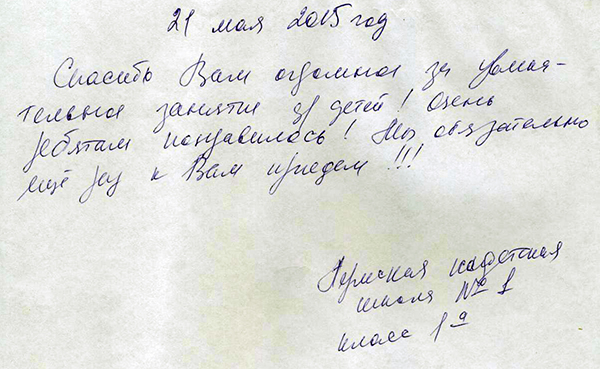 21 мая 2015 год
Спасибо Вам огромное за увлека-
тельное занятие для детей! Очень
ребятам понравилось! Мы обязательно
ещё раз к Вам придем!!!
Пермская кадетская
школа № 1
класс 1а